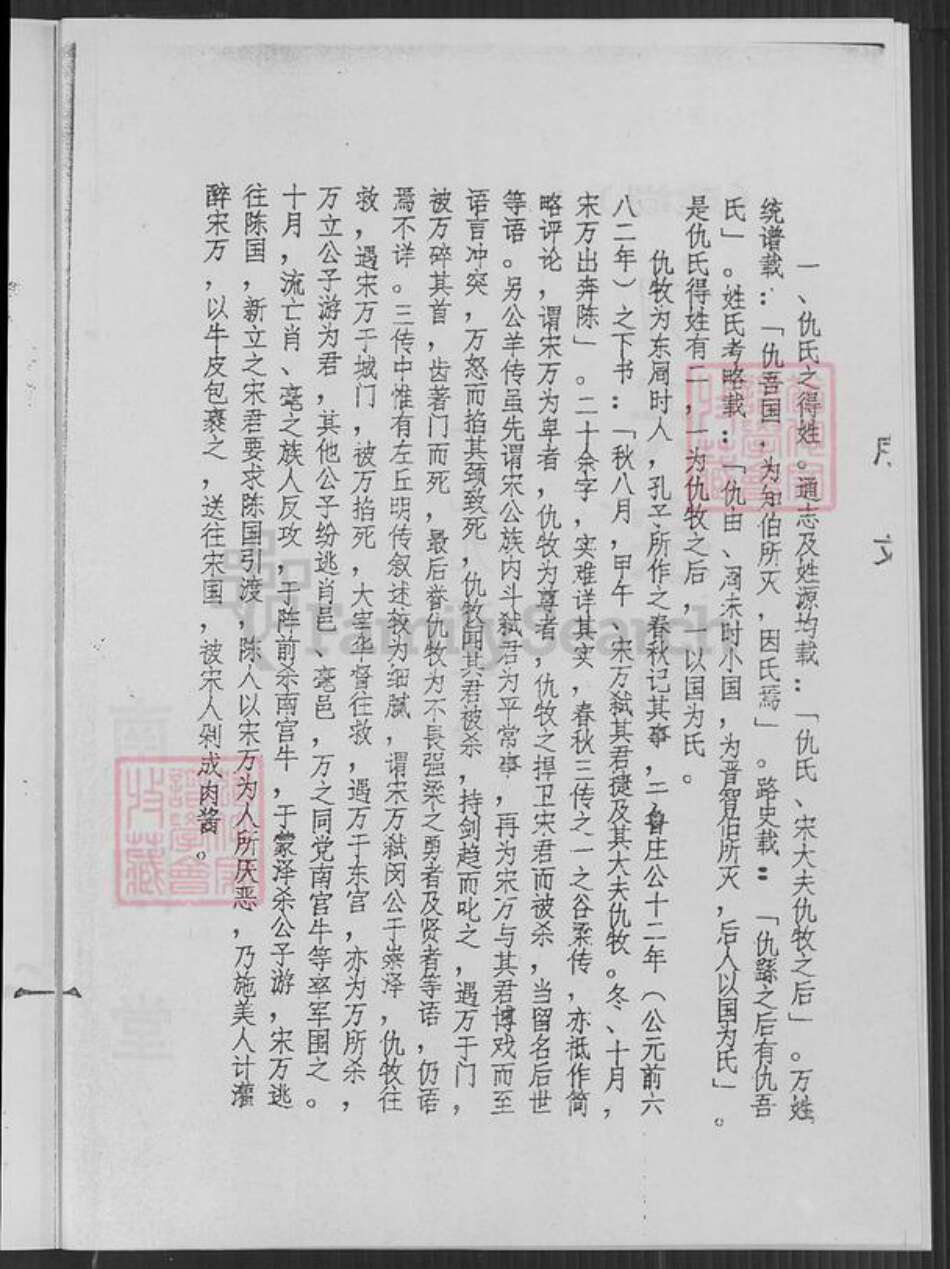 一、仇氏之得姓。通志及姓源均载：「仇氏、宋大夫仇牧之后」。万姓
统谱载：「仇吾国，为知伯所灭，因氏焉」。路史载：「仇繇之后有仇吾
氏」。姓氏考略载：「仇由、周末时小国，为晋智伯所灭，后人以国为氏」。
是仇氏得姓有二，一为仇牧之后，一以国为氏。
仇牧为东周时人，孔子所作之春秋记其事，二鲁庄公十二年（公元前六
八二年）之下书：「秋八月，甲午、宋万弑其君捷及其大夫仇牧。冬、十月，
宋万出奔陈」。二十余字，实难详其实，春秋三传之一之谷梁传，亦祗作简
略评论，谓宋万为卑者，仇牧为尊者，仇牧之捍卫宋君而被杀，当留名后世
等语。另公羊传虽先谓宋公族内斗弑君为平常事，再为宋万与其君博戏而至
语言冲突，万怒而掐其颈致死，仇牧闻其君被杀，持剑趋而叱之，遇万于门，
被万碎其首，齿著门而死，最后誊仇牧为不畏强梁之勇者及贤者等语，仍语
焉不详。三传中惟有左丘明传叙述较为细腻，谓宋万弑闵公于泽，仇牧往
救，遇宋万于城门，被万掐死，大宰华督往救，遇万于东宫，亦为万所杀，
万立公子游为君，其他公子纷逃肖邑、毫邑，万之同党南宫牛等率军围之。
十月，流亡肖、毫之族人反攻，于阵前杀南宫牛，于蒙泽杀公子游，宋万逃
往陈国，新立之宋君要求陈国引渡，陈人以宋万为人所厌恶，乃施美人计灌
醉宋万，以牛皮包裹之，送往宋国，被宋人剁成肉酱。
FamilySearch